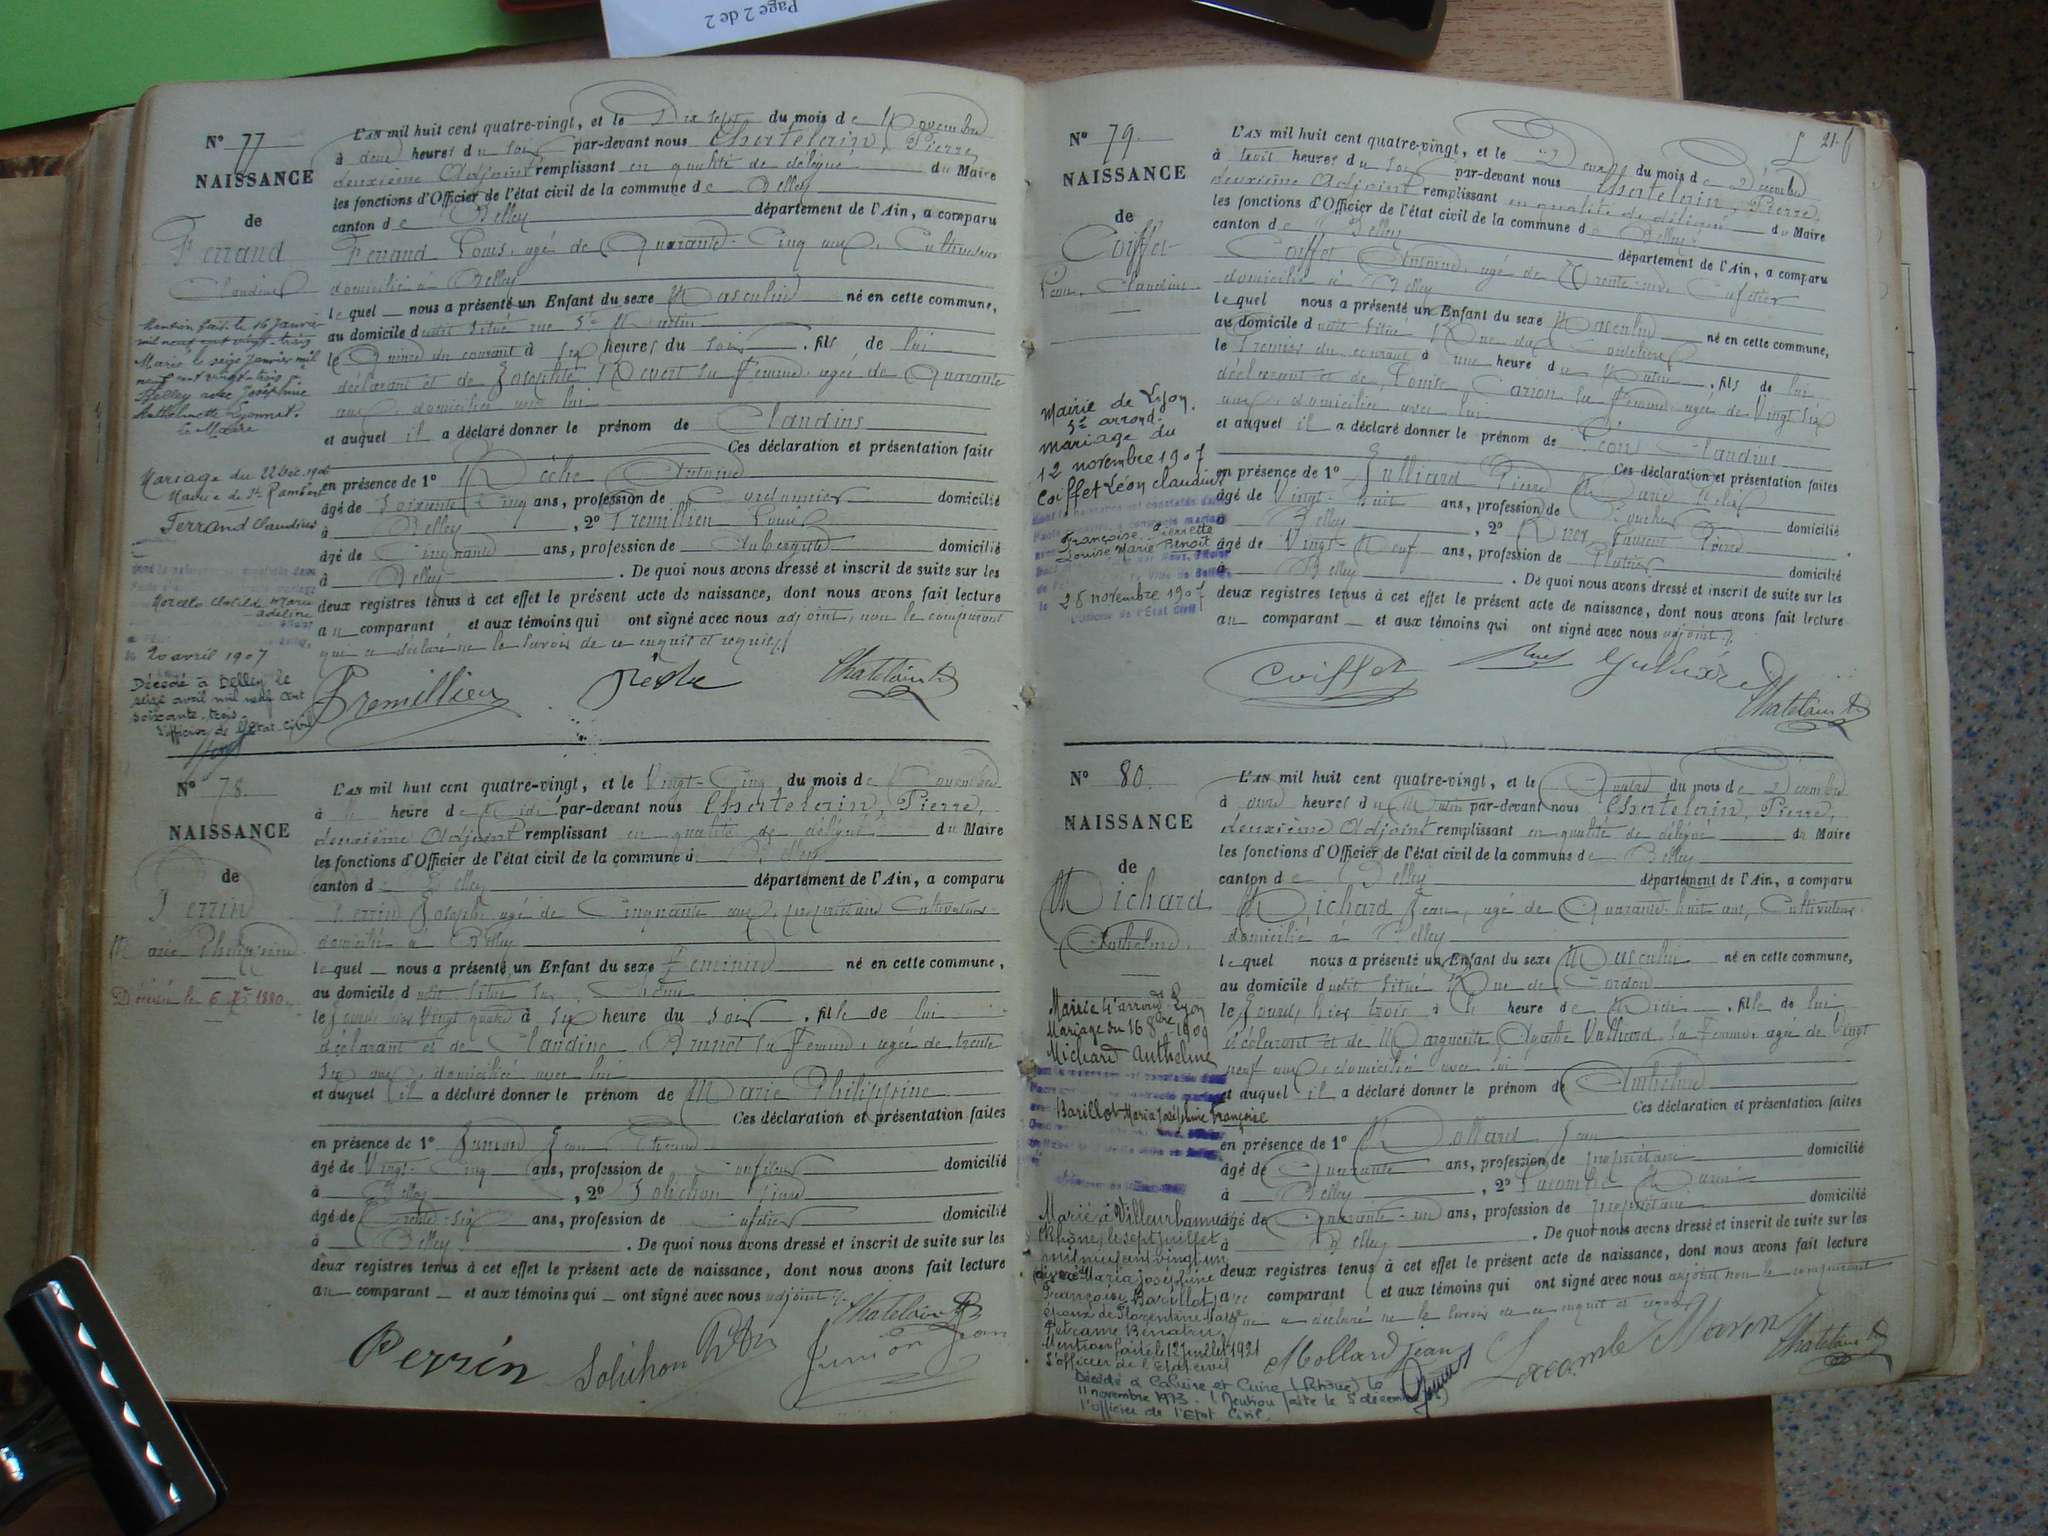 Page 2 de 2
N° 77
NAISSANCE
de
Ferrand
Claudius
Mention faite le 16 Janvier
mil neuf cent vingt-trois
Marié le seize Janvier mil
neuf cent vingt-trois à
Belley avec Joséphine
Anthelmette Lyonnet.
le Maire
Mariage du 22 Déc. 1906
Mairie de St Rambert
Ferrand Claudius
Clotilde Marie
Adeline
20 avril 1907
Décédé à Belley le
seize avril mil neuf cent
soixante-trois.
l'officier de l'Etat-Civil
L'AN mil huit cent quatre-vingt, et le Dix sept du mois de Novembre
à deux heures du soir par-devant nous Chatelain, Pierre,
deuxième Adjoint remplissant en qualité de délégué du Maire
les fonctions d'Officier de l'état civil de la commune de Belley
canton de Belley département de l'Ain, a comparu
Ferrand Louis, agé de Quarante-Cinq ans, Cultivateur
domicilié à Belley
lequel nous a présenté un Enfant du sexe Masculin né en cette commune,
au domicile dudit situé rue St Martin
le Quinze du courant à six heures du soir, fils de lui
déclarant et de sa Femme, agée de Quarante
ans, domiciliée avec lui
et auquel il a déclaré donner le prénom de Claudius
Ces déclaration et présentation faites
en présence de 1° Antoine
âgé de Soixante Cinq ans, profession de Cordonnier domicilié
à Belley, 2° Premillieu Louis
âgé de Cinquante ans, profession de Aubergiste domicilié
à Belley. De quoi nous avons dressé et inscrit de suite sur les
deux registres tenus à cet effet le présent acte de naissance, dont nous avons fait lecture
au comparant et aux témoins qui ont signé avec nous adjoint, non le comparant
qui a déclaré ne le savoir de ce enquis et requis
Premillieu Chatelain P
N° 78
NAISSANCE
de
Perrin
Marie Philippine
Décédée le 6 Xre 1880.
L'AN mil huit cent quatre-vingt, et le Vingt-Cinq du mois de Novembre
à heure de Midi par-devant nous Chatelain, Pierre,
deuxième Adjoint remplissant en qualité de délégué du Maire
les fonctions d'Officier de l'état civil de la commune d Belley
canton de Belley département de l'Ain, a comparu
Perrin Joseph, agé de Cinquante ans, propriétaire Cultivateur
domicilié à Belley
lequel nous a présenté un Enfant du sexe Féminin né en cette commune,
au domicile dudit situé
le jour d'hier Vingt quatre à six heure du soir, fille de lui
déclarant et de Claudine Brunet sa Femme, agée de trente
six ans, domiciliée avec lui
et auquel il a déclaré donner le prénom de Marie Philippine
Ces déclaration et présentation faites
en présence de 1° Junion Jean
âgé de Vingt-Cinq ans, profession de domicilié
à Belley, 2° Solichon Pierre
âgé de Trente-six ans, profession de Cafetier domicilié
à Belley. De quoi nous avons dressé et inscrit de suite sur les
deux registres tenus à cet effet le présent acte de naissance, dont nous avons fait lecture
au comparant et aux témoins qui ont signé avec nous adjoint
Perrin Solichon Junion Jean Chatelain P
21
N° 79
NAISSANCE
de
Coiffet
Léon, Claudius
Mairie de Lyon.
5e arrond.
mariage du
12 novembre 1907
Coiffet Léon Claudius
Françoise Pierrette
Louise Marie Benoit
28 novembre 1907
L'AN mil huit cent quatre-vingt, et le Deux du mois de Décembre
à trois heures du soir par-devant nous Chatelain, Pierre,
deuxième Adjoint remplissant en qualité de délégué du Maire
les fonctions d'Officier de l'état civil de la commune de Belley
canton de Belley département de l'Ain, a comparu
Coiffet Antoine, agé de Trente-un, Cafetier
domicilié à Belley
lequel nous a présenté un Enfant du sexe Masculin né en cette commune,
au domicile dudit situé Rue du
le Premier du courant à une heure du Matin, fils de lui
déclarant et de Louise Carron sa Femme, agée de Vingt six
ans, domiciliée avec lui
et auquel il a déclaré donner le prénom de Léon Claudius
Ces déclaration et présentation faites
en présence de 1° Julliard Pierre
âgé de Vingt-huit ans, profession de Boucher domicilié
à Belley, 2° Laurent Pierre
âgé de Vingt-Neuf ans, profession de Platrier domicilié
à Belley. De quoi nous avons dressé et inscrit de suite sur les
deux registres tenus à cet effet le présent acte de naissance, dont nous avons fait lecture
au comparant et aux témoins qui ont signé avec nous adjoint
Coiffet Chatelain P
N° 80
NAISSANCE
de
Michard
Anthelme
Mairie 4e arrond. Lyon
Mariage du 16 8bre 1909
Michard Anthelme
Barillot Maria Joséphine Françoise
Marié à Villeurbanne
(Rhône) le sept juillet
mil neuf cent vingt un
divorcé Maria Joséphine
Françoise Barillot, avec
Mention faite le 12 juillet 1921
L'officier de l'Etat civil
Décédé à Caluire et Cuire (Rhône) le
11 novembre 1973. (Mention faite le 5 décembre
l'officier de l'Etat Civil.
L'AN mil huit cent quatre-vingt, et le Quatre du mois de Décembre
à onze heures du Matin par-devant nous Chatelain, Pierre,
deuxième Adjoint remplissant en qualité de délégué du Maire
les fonctions d'Officier de l'état civil de la commune de Belley
canton de Belley département de l'Ain, a comparu
Michard Jean, agé de Quarante-huit ans, Cultivateur
domicilié à Belley
lequel nous a présenté un Enfant du sexe Masculin né en cette commune,
au domicile dudit situé Rue de
le jour d'hier trois à heure de Midi, fils de lui
déclarant et de Marguerite Agathe Vulliard, sa Femme, agée de Vingt
neuf ans, domiciliée avec lui
et auquel il a déclaré donner le prénom de Anthelme
Ces déclaration et présentation faites
en présence de 1° Mollard Jean
âgé de Quarante ans, profession de propriétaire domicilié
à Belley, 2° Lacombe Marin
âgé de Quarante-un ans, profession de propriétaire domicilié
à Belley. De quoi nous avons dressé et inscrit de suite sur les
deux registres tenus à cet effet le présent acte de naissance, dont nous avons fait lecture
au comparant et aux témoins qui ont signé avec nous adjoint non le comparant
qui a déclaré ne le savoir de ce enquis et requis
Mollard Jean Lacombe Marin Chatelain P